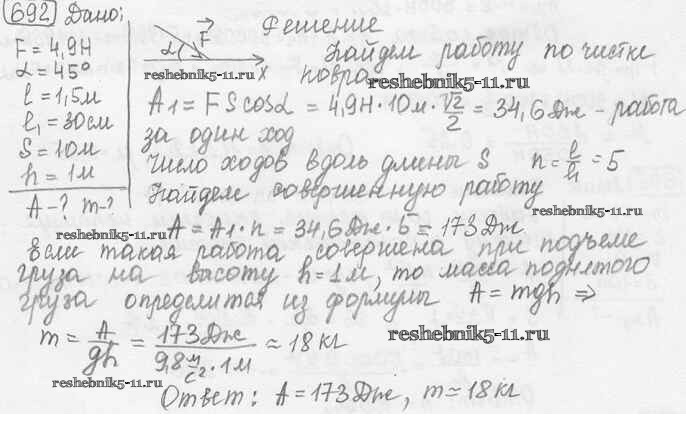 692 Дано:
F = 4,9Н
α = 45°
l = 1,5м
l₁ = 30см
S = 10м
h = 1м
A - ? m - ?
reshebnik5-11.ru
Решение
α F
X
reshebnik5-11.ru
Найдем работу по чистке
ковра
reshebnik5-11.ru
A₁ = FS cosα = 4,9Н · 10м · √2/2 = 34,6 Дж - работа
за один ход
Число ходов вдоль длины S n = l/l₁ = 5
Найдем совершенную работу
reshebnik5-11.ru
A = A₁ · n = 34,6 Дж · 5 = 173 Дж
Если такая работа совершена при подъеме
груза на высоту h = 1м, то масса поднятого
груза определится из формулы A = mgh ⇒
m = A/gh = 173 Дж/9,8 м/с² · 1м ≃ 18 кг
reshebnik5-11.ru
reshebnik5-11.ru
Ответ: A = 173 Дж, m ≃ 18 кг